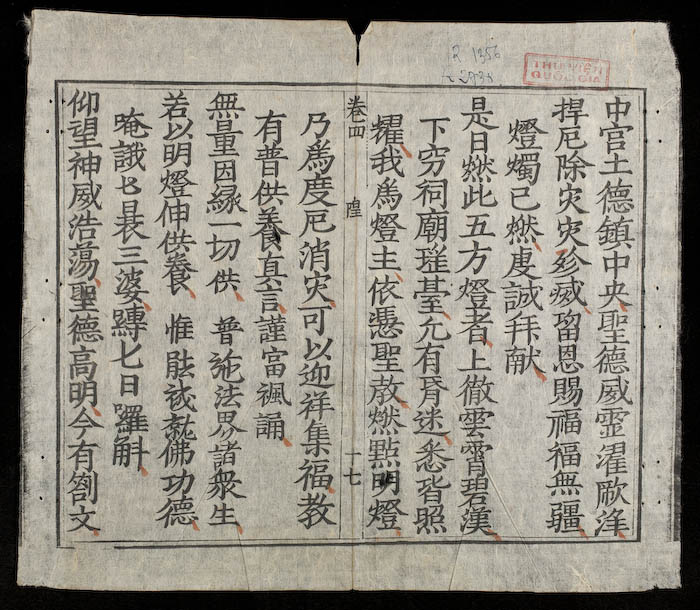 R 1356
THƯ VIỆN
QUỐC GIA
中宮土德鎮中央聖德威灵濯厥洚
捍厄除灾灾殄㓕畱恩賜福福無疆
燈燭已燃䖍誠拜献
是日燃此五方燈者上徹雲霄碧漢
下穷祠廟璀䑓允有昏迷悉皆照
耀我爲燈主依憑聖教燃點明燈
卷四
隍
十七
乃爲度厄消灾可以迎祥集福教
有普供養真言謹當諷誦
無量因縁一切供普施法界諸衆生
若以明燈伸供養惟能彂就佛功德
唵誐三婆嚩七日囉斛
仰望神威浩蕩聖德高明今有劄文